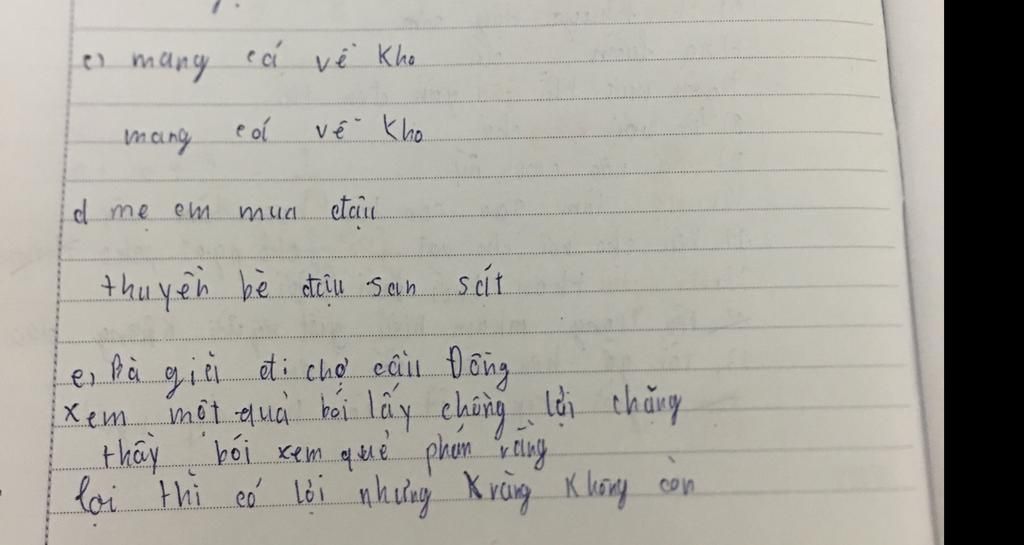 c) mang cá về kho
mang cá về kho
d mẹ em mua đậu
thuyền bè đậu san sát
e, Bà già đi chợ cầu Đông
xem một quả bói lấy chồng lợi chăng
thầy bói xem quẻ phán rằng
lợi thì có lợi nhưng răng không còn